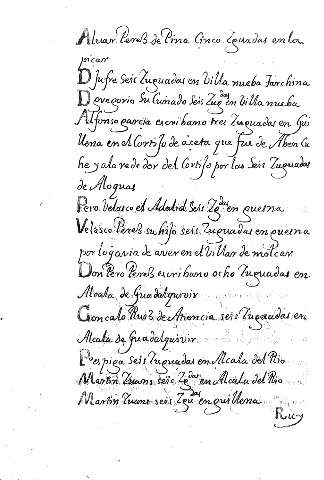 Aluar Perez de Pina Cinco Zguadas en la
picar
D jufre Seis Zuguadas en Villa nueba Farchina
D gregorio Su Cuñado Seis Zugdas en Villa nueba
Alfonso garcia escribano tres Zuguadas en Gui
llena en el Cortijo de aceta que fue de Aben Ca
he y a la rededor del Cortijo por los Seis Zuguadas
de Aloguas
Pero Velasco el Adalid Seis Zgdas en guesna
Velasco Perez su hijo seis Zuguadas en guesna
por lo q̃ avia de aver en el Villar de molcar
Don Pero Perez escribano ocho Zuguadas en
Alcala de Guadalquivir
Goncalo Ruiz de Atiencia seis Zuguadas en
Alcala de Guadalquivir
P espiga Seis Zuguadas en Alcala del Rio
Martin Zuanes seis Zgdas en Alcala del Rio
Martin Zuanes seis Zgudas en guillena
Ruy